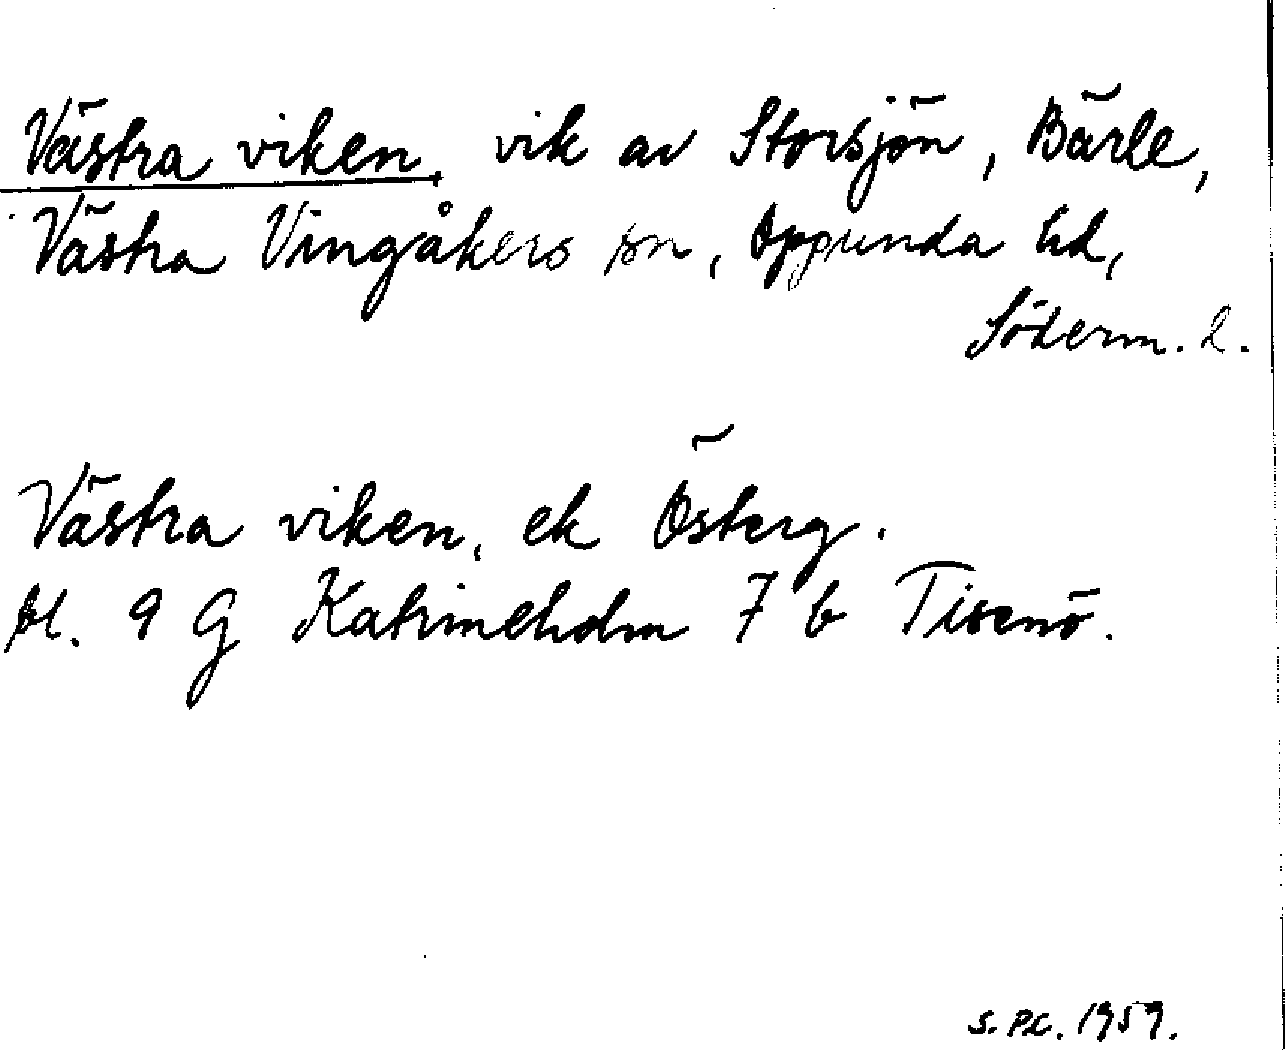 Västra viken, vik av Storsjön, Bärle,
Västra Vingåkers sn, Oppunda hd,
Söderm. l.
Västra viken, ek Österg.
bl. 9 G Katrineholm 7 b Tisenö.
1959.